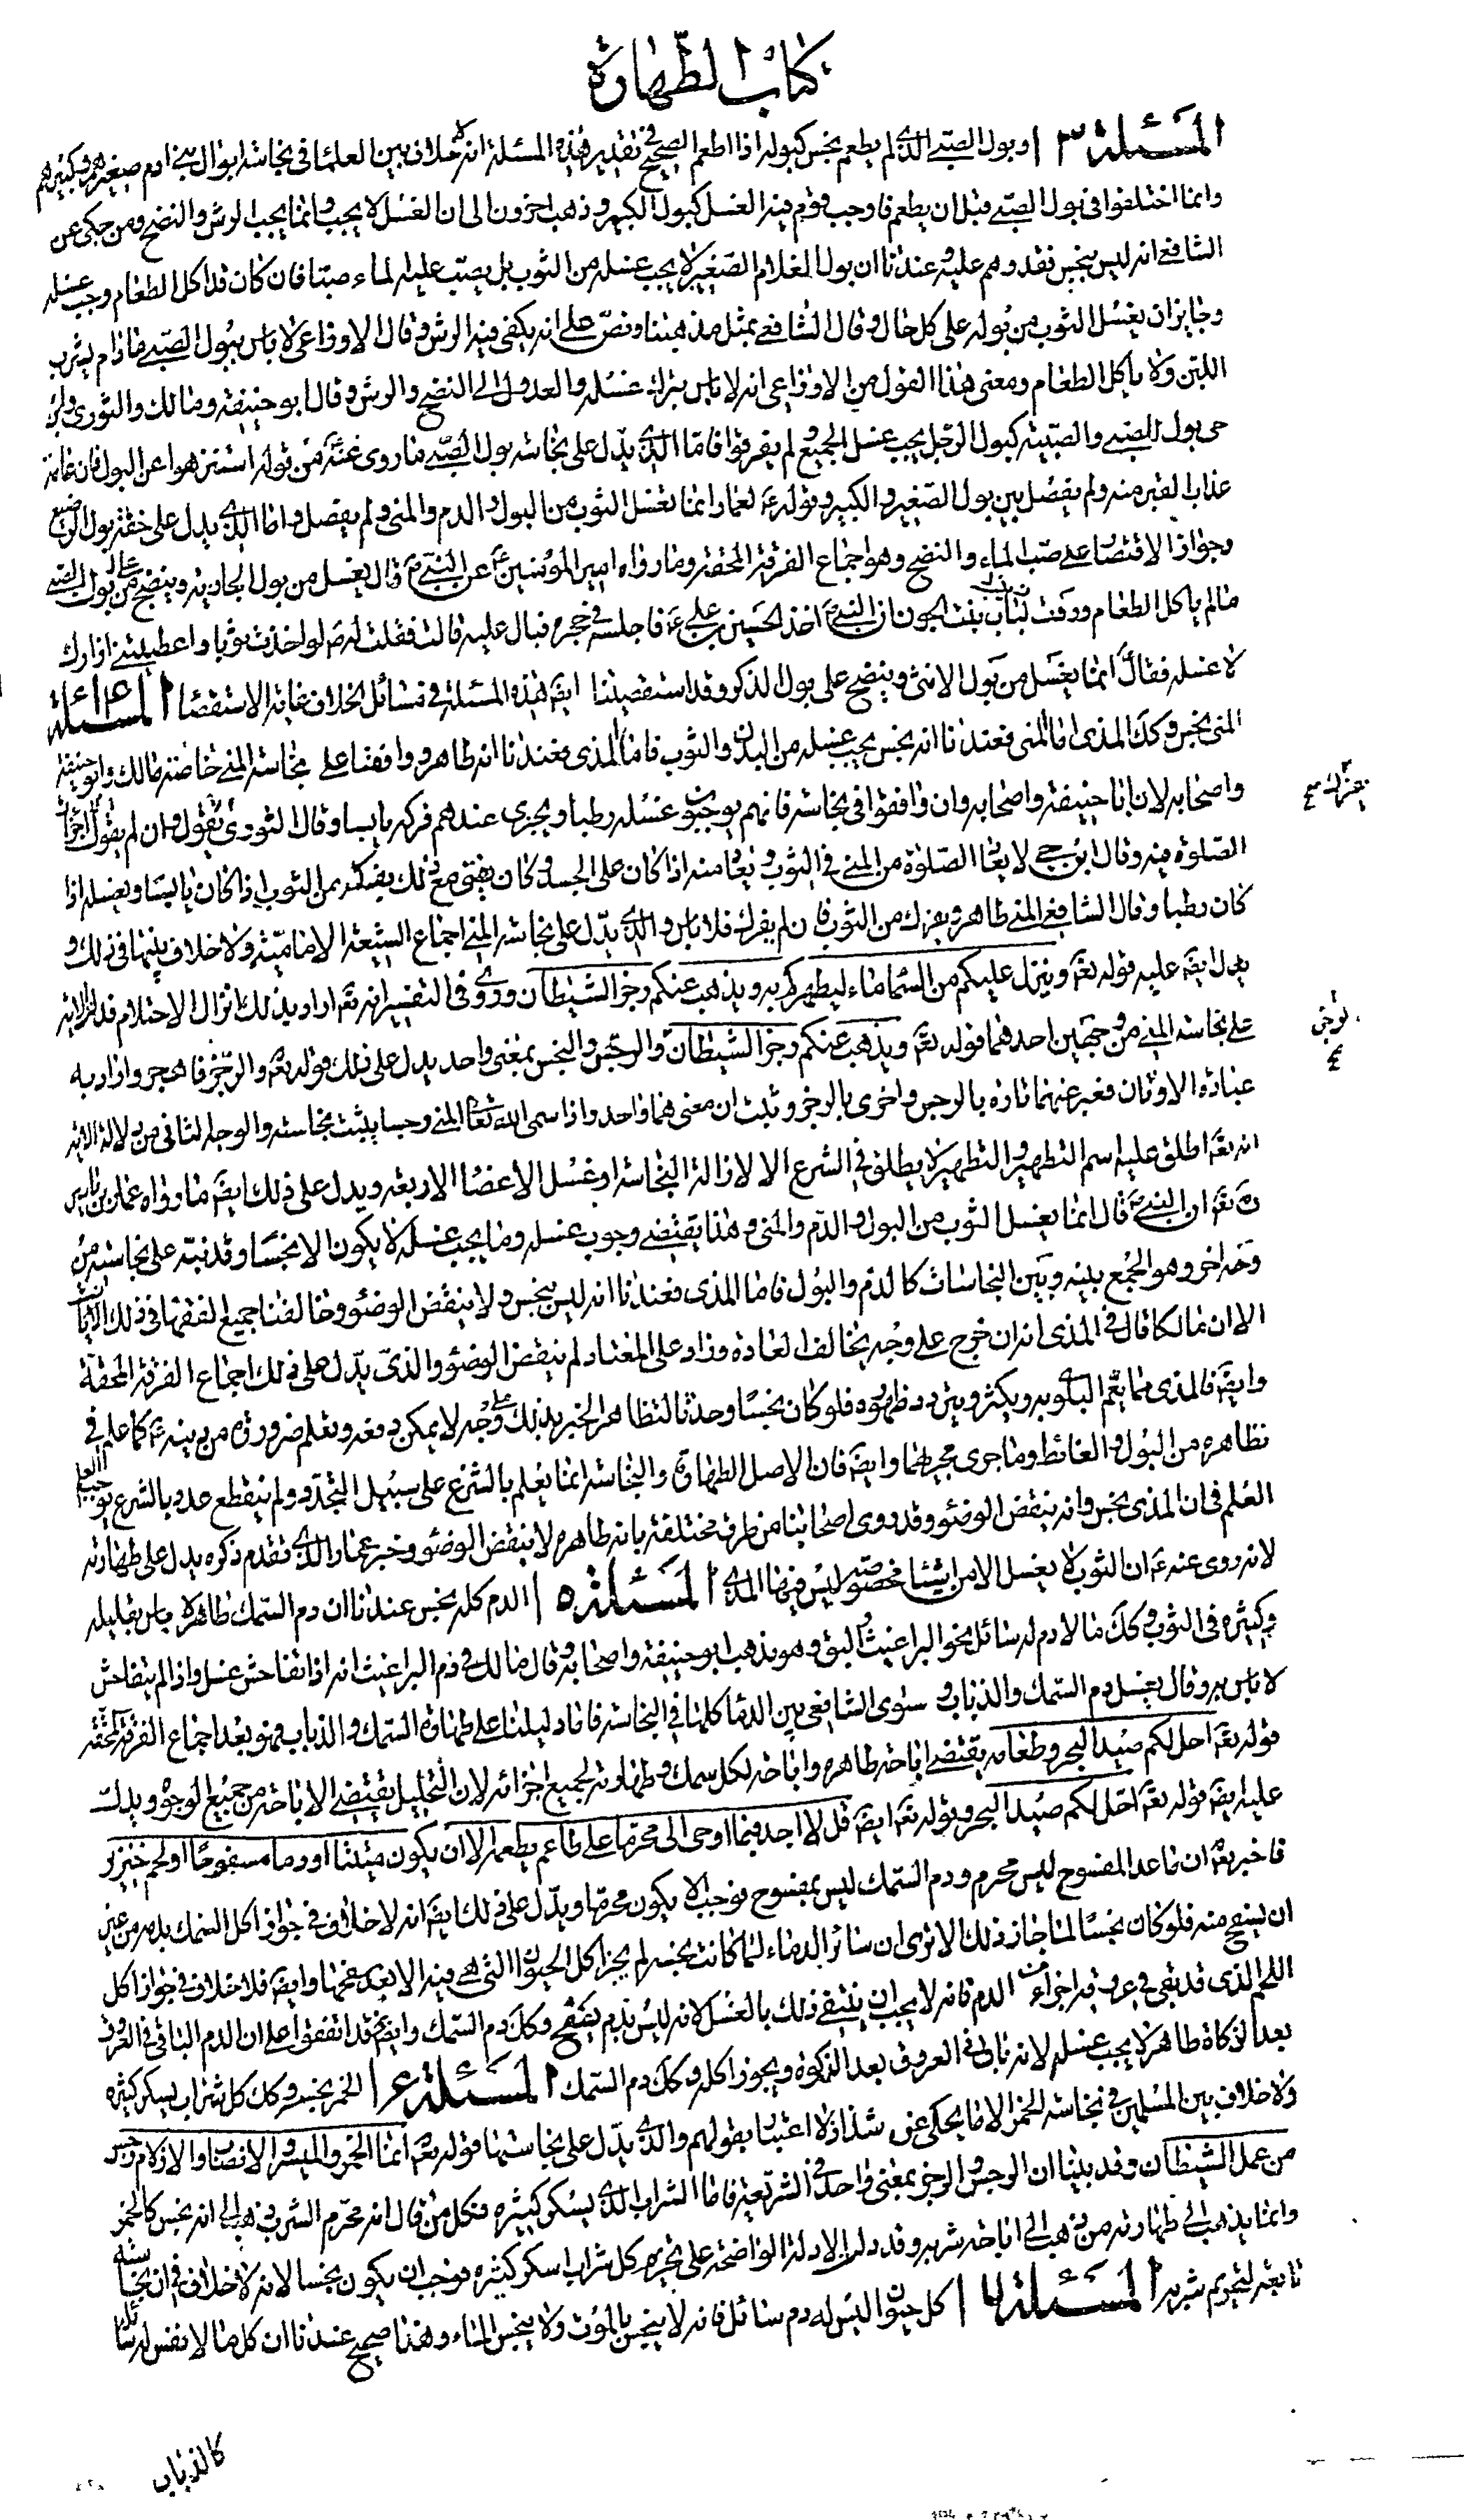 كتاب الطهارة
المسئلة ١٣ وبول الصبي الذي لم يطعم نجس كبوله اذا اطعم الصحيح في تقدير هذه المسئلة انه لا خلاف بين العلماء في نجاسة ابوال بني ادم صغيرهم وكبيرهم
وانما اختلفوا في بول الصبي قبل ان يطعم فاوجب قوم فيه الغسل كبول الكبير وذهب اخرون الى ان الغسل لا يجب وانما يجب الرش والنضح ومن حكى عن
الشافعي انه ليس بنجس فقد وهم عليه وعندنا ان بول الغلام الصغير لا يجب غسله من الثوب بل يصب عليه الماء صبا فان كان قد اكل الطعام وجب غسله
وجايز ان يغسل الثوب من بوله على كل حال وقال الشافعي بمثل مذهبنا ونص على انه يكفي فيه الرش وقال الاوزاعي لا باس ببول الصبي مادام يشرب
اللبن ولا ياكل الطعام ومعنى هذا القول من الاوزاعي انه لا باس بترك غسله والعدول الى النضح والرش وقال ابو حنيفة ومالك والثوري وابن
حي بول الصبي والصبية كبول الرجل يجب غسل الجميع ولم يفرقوا فاما الذي يدل على نجاسة بول الصبي ما روى عنه من قوله استنزهوا عن البول فان عامة
عذاب القبر منه ولم يفصل بين بول الصغير والكبير وقوله ع لعمار انما تغسل الثوب من البول والدم والمني ولم يفصل واما الذي يدل على خفة بول الرضيع
وجواز الاقتصار على صب الماء والنضح وهو اجماع الفرقة المحقة وما رواه امير المؤمنين ع عن النبي ص قال يغسل من بول الجارية وينضح من بول الصبي
مالم ياكل الطعام وروت لبابة بنت الجون ان النبي ص اخذ الحسين بن علي ع فاجلسه في حجره فبال عليه قالت فقلت له لو اخذت ثوبا واعطيتني ازارك
لاغسله فقال انما يغسل من بول الانثى وينضح على بول الذكر وقد استقصينا ايضه هذه المسئلة في مسائل الخلاف غاية الاستقصا المسئلة ١٤
المني نجس وكك المذي اما المني فعندنا انه نجس يجب غسله من البدن والثوب فاما المذي فعندنا انه طاهر ووافقنا على نجاسة المني خاصة مالك وابو حنيفة
واصحابه لان ابا حنيفة واصحابه وان وافقوا في نجاسته فانهم يوجبون غسله رطبا ويجزي عندهم فركه يابسا وقال الثوري يفرك وان لم يفرك اجزات
الصلوة فيه وقال ابن حي لا يعاد الصلوة من المني في الثوب ويعاد منه اذا كان على الجسد وكان يفتي مع ذلك بفركه من الثوب اذا كان يابسا وبغسله اذا
كان رطبا وقال الشافعي المني طاهر ويفرك من الثوب فان لم يفرك فلا باس والذي يدل على نجاسة المني اجماع الشيعة الامامية ولا خلاف بينها في ذلك و
يدل ايضه عليه قوله تعه وينزل عليكم من السماء ماء ليطهركم به ويذهب عنكم رجز الشيطان وروي في التفسير انه تعه اراد بذلك اثر الاحتلام فدلالة الاية
على نجاسة المني من وجهين احدهما قوله تعه ويذهب عنكم رجز الشيطان والرجس والنجس بمعنى واحد يدل على ذلك قوله تعه والرجز فاهجر واراد به
عبادة الاوثان فعبر عنهما تارة بالرجس واخرى بالرجز وثبت ان معنى هما واحد واذا سمى الله تعالى المني رجسا يثبت نجاسته والوجه الثاني من دلالة الاية
انه تعه اطلق عليه اسم التطهير والتطهير لا يطلق في الشرع الا لازالة النجاسة او غسل الاعضا الاربعة ويدل على ذلك ايضه ما رواه عمار بن ياسر
ره ان النبي ص قال انما يغسل الثوب من البول والدم والمني وهذا يقتضي وجوب غسله وما يجب غسله لا يكون الا نجسا وقد نبه على نجاسته من
وجه اخر وهو الجمع بينه وبين النجاسات كالدم والبول فاما المذي فعندنا انه ليس بنجس ولا ينقض الوضوء وخالفنا جميع الفقها في ذلك
الا ان مالكا قال في المذي انه ان خرج على وجه يخالف العادة وزاد على المعتاد لم ينقض الوضوء والذي يدل على ذلك اجماع الفرقة المحقة
وايضه فالمذي مما يعم البلوى به ويكثر ويتردد ظهوره فلو كان نجسا وحدثا لتظاهر الخبر بذلك على وجه لا يمكن دفعه ونعلم ضرورة من دينه ع كما علم في
نظائره من البول والغائط وما جرى مجريهما وايضه فان الاصل الطهارة والنجاسة انما يعلم بالشرع على سبيل التجدد ولم ينقطع عذر بالشرع يوجب
العلم في ان المذي نجس وانه ينقض الوضوء وقد روى اصحابنا من طرق مختلفة بانه طاهر لا ينقض الوضوء وخبر عمار الذي تقدم ذكره يدل على طهارته
لانه روى عنه ع ان الثوب لا يغسل الا من اشيا مخصوصة ليس فيها المذي المسئلة ١٥ الدم كله نجس عندنا ان دم السمك طاهر لا باس بقليله
وكثيره في الثوب وكك ما لا دم له سائل نحو البراغيث والبق وهو مذهب ابو حنيفة واصحابه وقال مالك في دم البراغيث انه اذا تفاحش غسل واذا لم يتفاحش
لا باس به وقال يغسل دم السمك والذباب وسوى الشافعي بين الدماء كلها في النجاسة فاما دليلنا على طهارة السمك والذباب فهو بعد اجماع الفرقة المحقة
قوله تعه احل لكم صيد البحر وطعامه يقتضي اباحة ظاهره واباحة لكل سمك وطهارته لجميع اجزائه لان التحليل يقتضي الاباحة من جميع الوجوه ويدل
عليه ايضه قوله تعه احل لكم صيد البحر وقوله تعه ايضه قل لا اجد فيما اوحي الي محرما على طاعم يطعمه الا ان يكون ميتة او دما مسفوحا او لحم خنزير
فاخبر تعه ان ماعدا المفسوح ليس محرم ودم السمك ليس بمفسوح فوجب الا يكون محرما ويدل على ذلك ايضه انه لا خلاف في جواز اكل السمك بدمه من غير
ان يسفح منه فلو كان نجسا لما جاز ذلك الا ترى ان سائر الدماء لما كانت نجسة لم يجز اكل الحيوان التي هي فيه الا بعد سفحها وايضه فلا خلاف في جواز اكل
اللحم الذي قد بقي في عروقه اجزاء من الدم فانه لا يجب ان ينقى ذلك بالغسل لانه ليس بدم يسفح وكك دم السمك وايضه فقد اتفقوا على ان الدم الباقي في العروق
بعد الذكاة طاهر لا يجب غسله لانه باق في العروق بعد الذكوة ويجوز اكله وكك دم السمك المسئلة ١٦ الخمر نجسه وكك كل شراب يسكر كثيره
ولا خلاف بين المسلمين في نجاسة الخمر الا ما يحكى عن شذاذ لا اعتبار بقولهم والذي يدل على نجاستها قوله تعه انما الخمر والميسر والانصاب والازلام رجس
من عمل الشيطان وقد بينا ان الرجس والرجز بمعنى واحد في الشريعة فاما الشراب الذي يسكر كثيره فكل من قال انه محرم الشرب ذهب الى انه نجس كالخمر
وانما يذهب الى طهارته من ذهب الى اباحة شربه وقد دلت الادلة الواضحة على تحريم كل شراب اسكر كثيره فوجب ان يكون نجسا لانه لا خلاف في ان نجاسته
تابعة لتحريم شربه المسئلة ١٧ كل حيوان ليس له دم سائل فانه لا ينجس بالموت ولا ينجس الماء وهذا صحيح عندنا ان كل ما لا نفس له سائلة
كالذباب